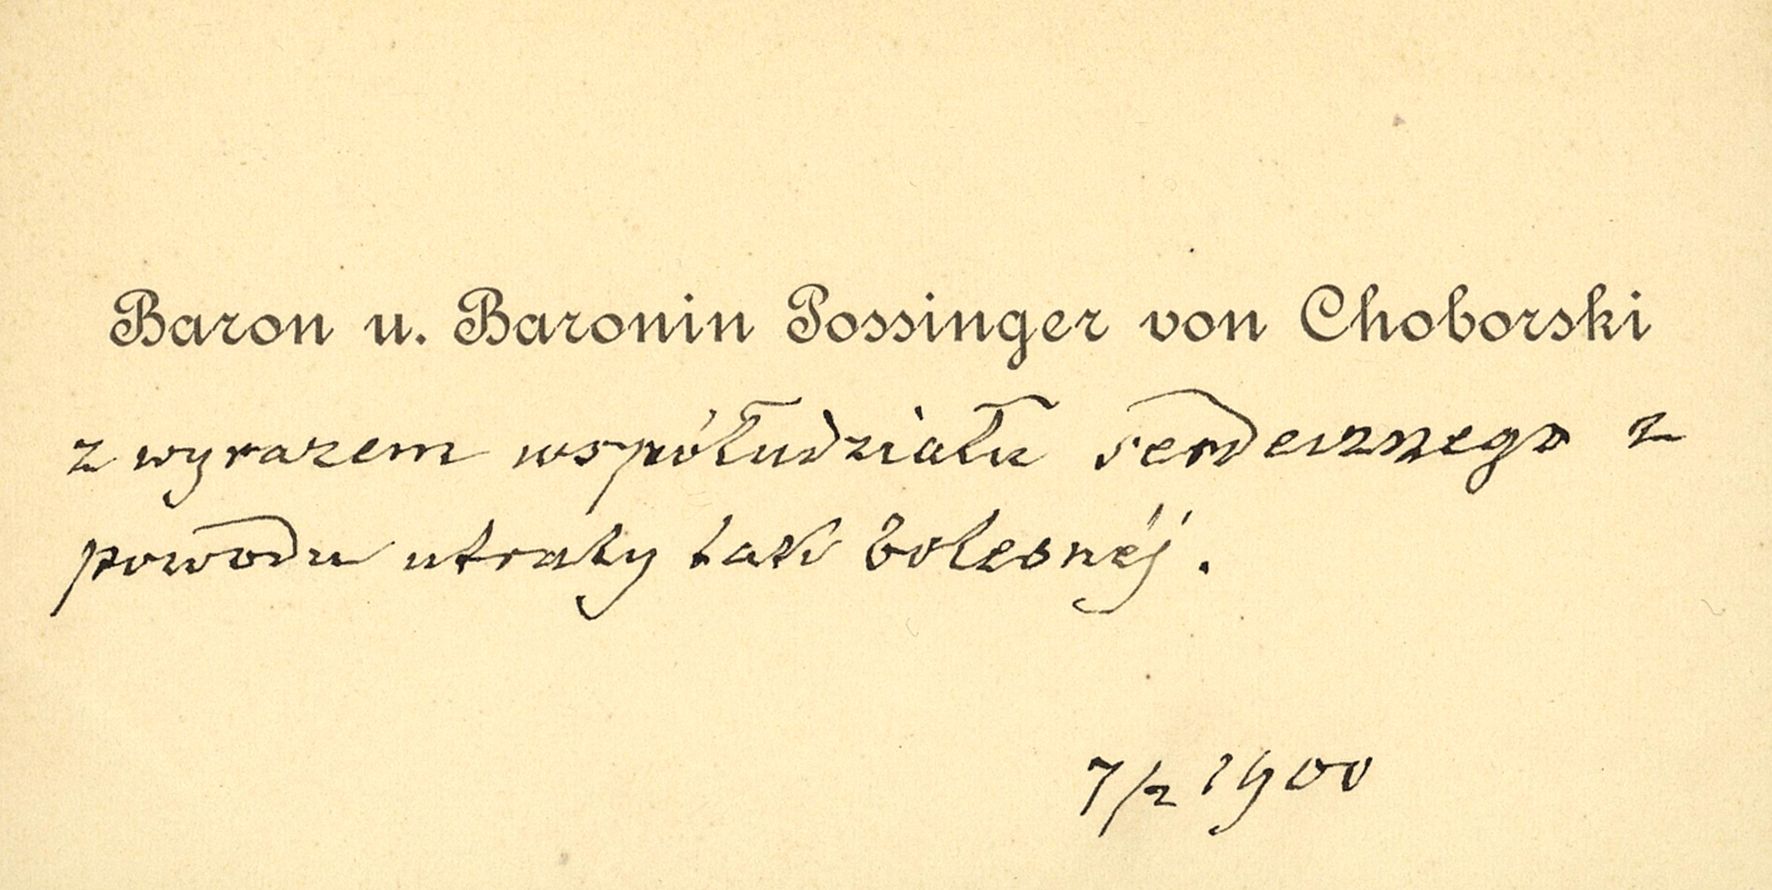 Baron u. Baronin Possinger von Choborski
z wyrazem współudziału serdecznego z
powodu utraty tak bolesnéj.
7/2 1900